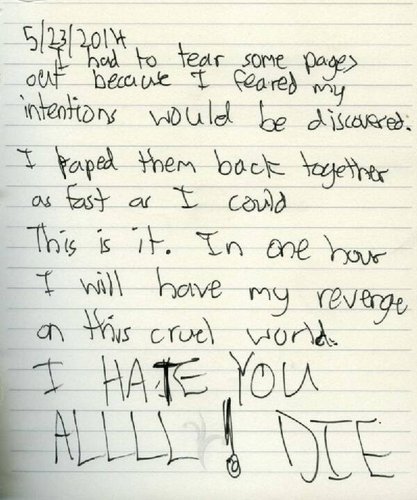 5/23/2014
I had to tear some pages
out because I feared my
intentions would be discovered.
I taped them back together
as fast as I could
This is it. In one hour
I will have my revenge
on this cruel world.
I HATE YOU
ALLLLL! DIE